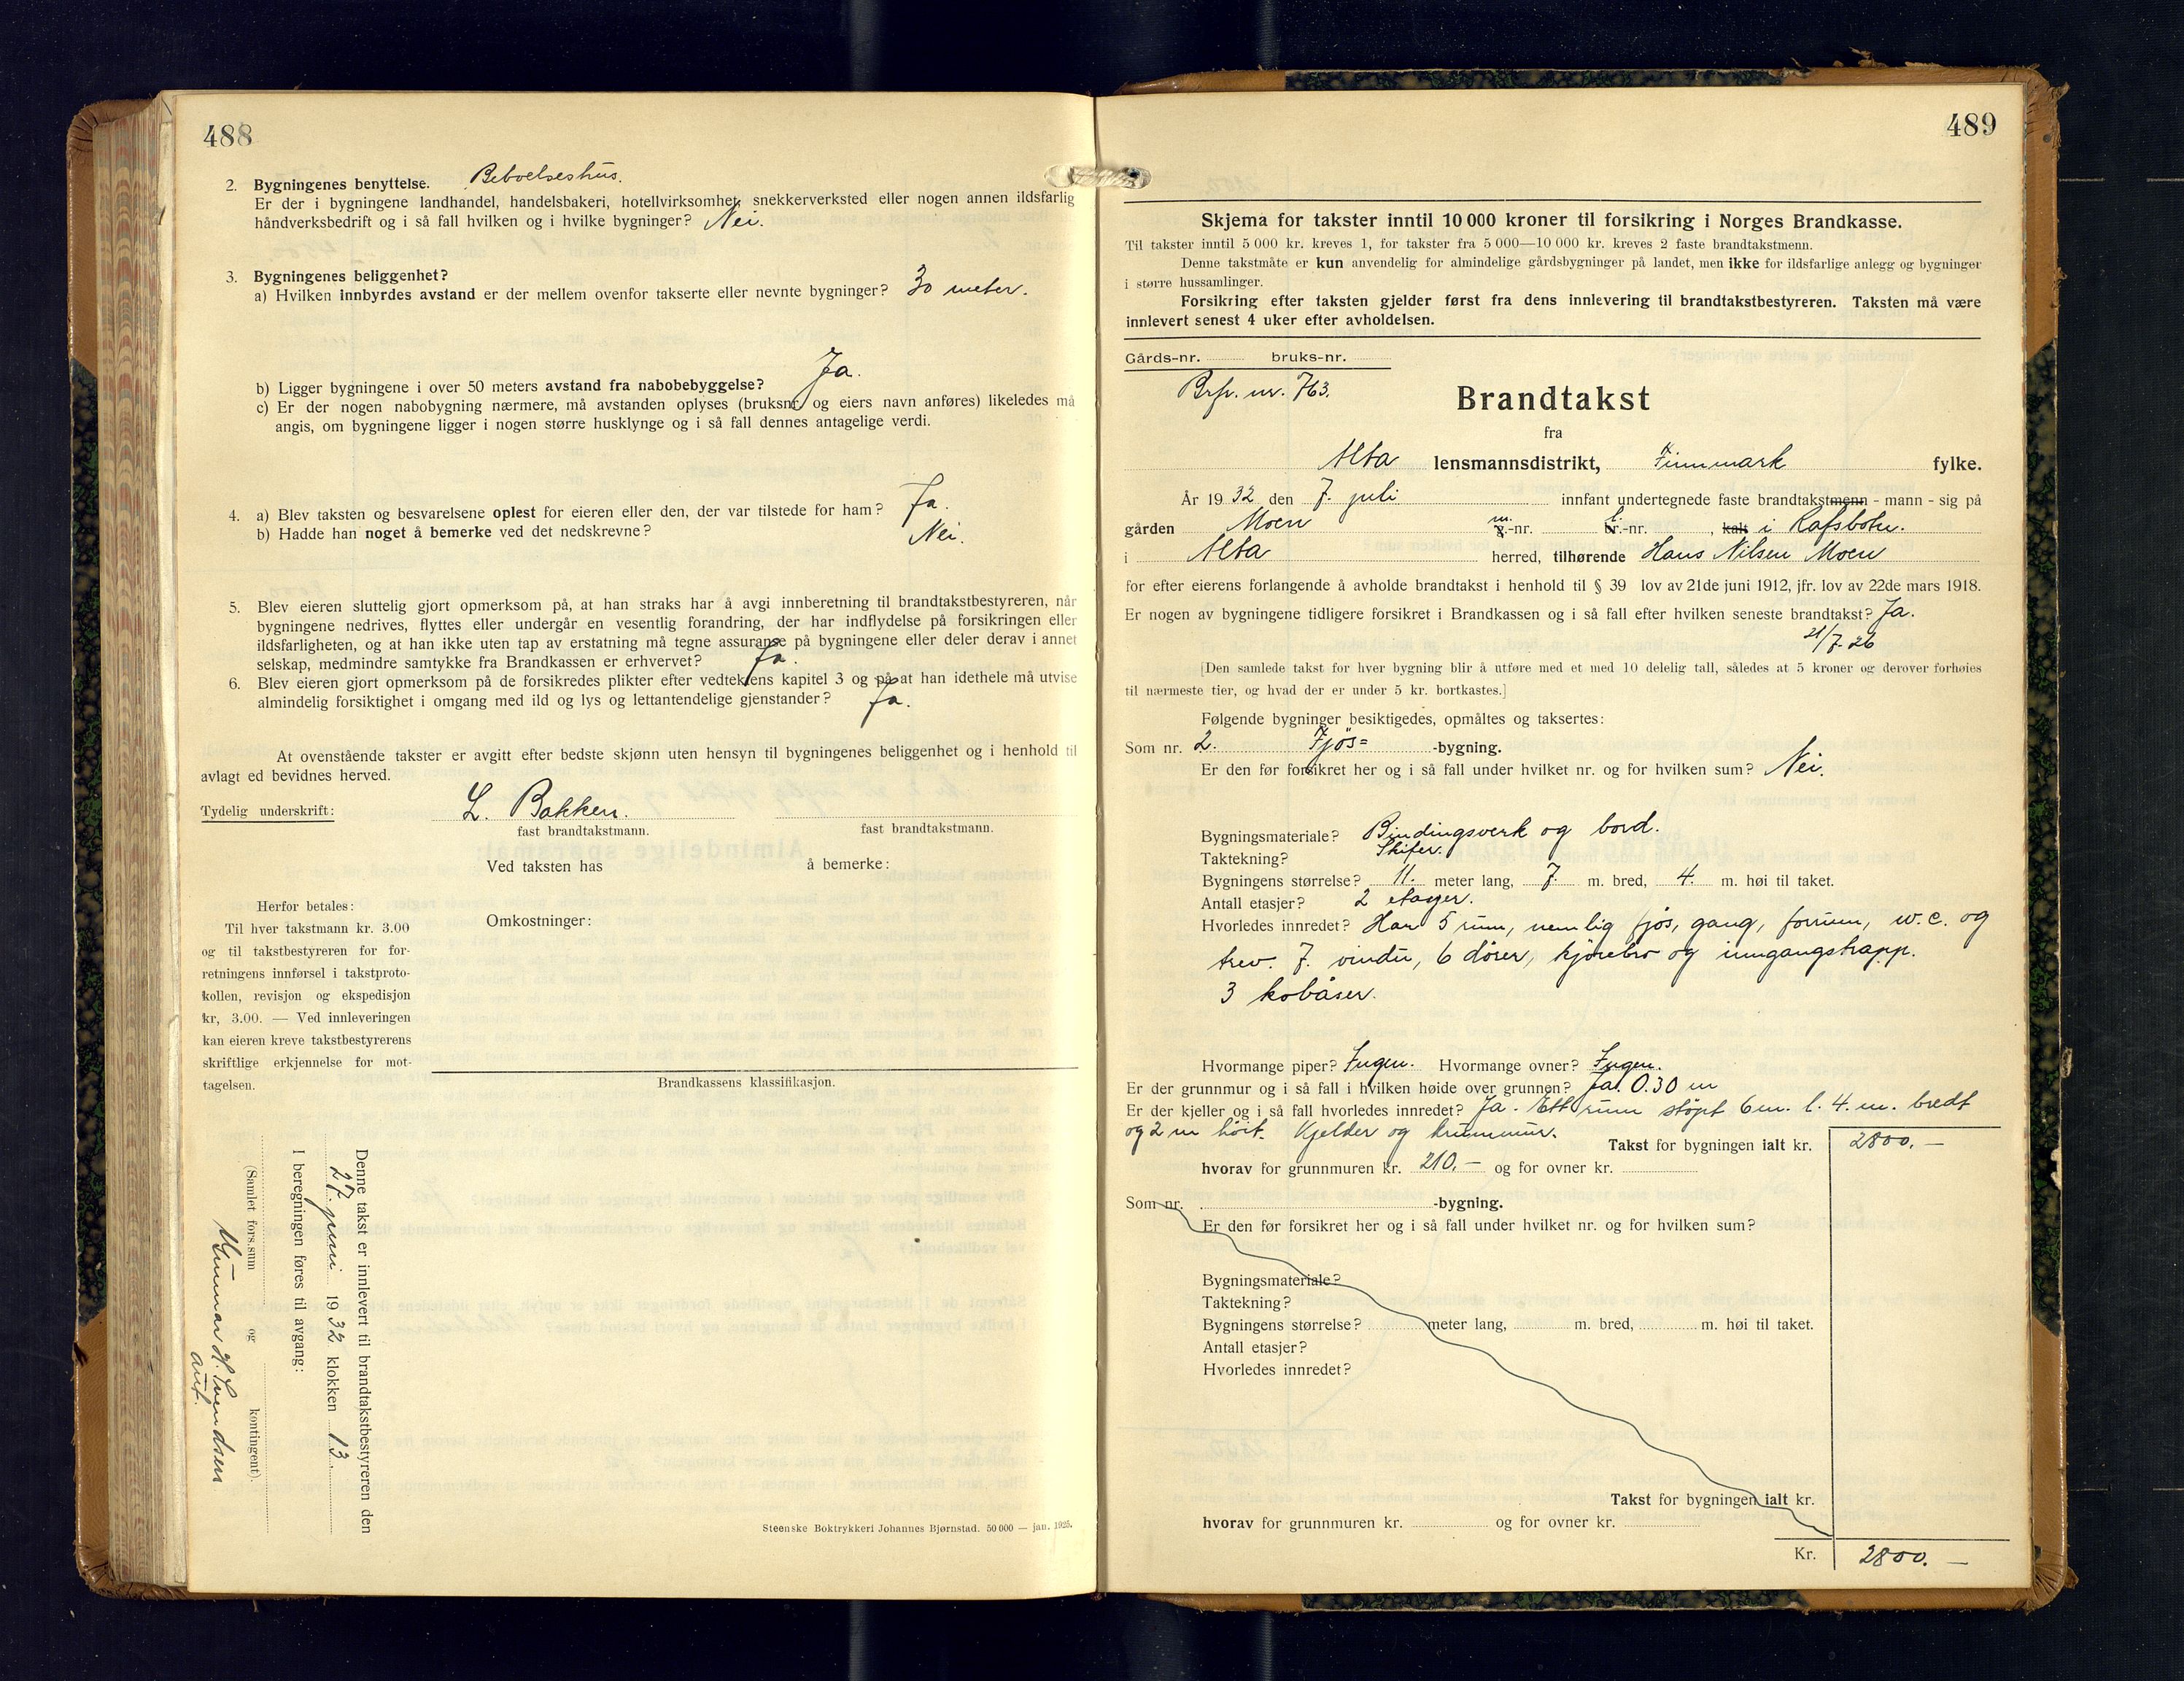 488
2. Bygningenes benyttelse. Beboelseshus.
Er der i bygningene landhandel, handelsbakeri, hotellvirksomhet, snekkerverksted eller nogen annen ildsfarlig
håndverksbedrift og i så fall hvilken og i hvilke bygninger? Nei.
3. Bygningenes beliggenhet?
a) Hvilken innbyrdes avstand er der mellem ovenfor takserte eller nevnte bygninger? 30 meter.
b) Ligger bygningene i over 50 meters avstand fra nabobebyggelse? Ja.
c) Er der nogen nabobygning nærmere, må avstanden oplyses (bruksnr. og eiers navn anføres) likeledes må
angis, om bygningene ligger i nogen større husklynge og i så fall dennes antagelige verdi.
4. a) Blev taksten og besvarelsene oplest for eieren eller den, der var tilstede for ham? Ja.
b) Hadde han noget å bemerke ved det nedskrevne? Nei.
5. Blev eieren sluttelig gjort opmerksom på, at han straks har å avgi innberetning til brandtakstbestyreren, når
bygningene nedrives, flyttes eller undergår en vesentlig forandring, der har indflydelse på forsikringen eller
ildsfarligheten, og at han ikke uten tap av erstatning må tegne assuranse på bygningene eller deler derav i annet
selskap, medmindre samtykke fra Brandkassen er erhvervet? Ja.
6. Blev eieren gjort opmerksom på de forsikredes plikter efter vedtektens kapitel 3 og på at han idethele må utvise
almindelig forsiktighet i omgang med ild og lys og lettantendelige gjenstander? Ja.
At ovenstående takster er avgitt efter bedste skjønn uten hensyn til bygningenes beliggenhet og i henhold til
avlagt ed bevidnes herved.
Tydelig underskrift: L. Bakken.
fast brandtakstmann. fast brandtakstmann.
Ved taksten has å bemerke:
Herfor betales:
Til hver takstmann kr. 3.00
og til takstbestyreren for for-
retningens innførsel i takstproto-
kollen, revisjon og ekspedisjon
kr, 3.00. — Ved innleveringen
kan eieren kreve takstbestyrerens
skriftlige erkjennelse for mot-
tagelsen.
Omkostninger:
Brandkassens klassifikasjon.
Denne takst er innlevert til brandtakstbestyreren den
27. juni 1932 klokken 13
I beregningen føres til avgang:
(Samlet fors.sum og kontingent).
Gunnar H. Svendsen
aut.
Steenske Boktrykkeri Johannes Bjørnstad. 50 000 — jan. 1925.
489
Skjema for takster inntil 10 000 kroner til forsikring i Norges Brandkasse.
Til takster inntil 5 000 kr. kreves 1, for takster fra 5 000—10 000 kr. kreves 2 faste brandtakstmenn.
Denne takstmåte er kun anvendelig for almindelige gårdsbygninger på landet, men ikke for ildsfarlige anlegg og bygninger
i større hussamlinger.
Forsikring efter taksten gjelder først fra dens innlevering til brandtakstbestyreren. Taksten må være
innlevert senest 4 uker efter avholdelsen.
Gårds-nr. bruks-nr.
Brfr. nr. 763.
Brandtakst
fra
Alta lensmannsdistrikt, Finnmark fylke.
År 1932 den 7. juli innfant undertegnede faste brandtakstmenn - mann - sig på
gården Moen m.-nr. l.-nr. , kalt i Rafsbotn.
i Alta herred, tilhørende Hans Nilsen Moen
for efter eierens forlangende å avholde brandtakst i henhold til § 39 lov av 21de juni 1912, jfr. lov av 22de mars 1918.
Er nogen av bygningene tidligere forsikret i Brandkassen og i så fall efter hvilken seneste brandtakst? Ja.
21/7-26
[Den samlede takst for hver bygning blir å utføre med et med 10 delelig tall, således at 5 kroner og derover forhøies
til nærmeste tier, og hvad der er under 5 kr. bortkastes.]
Følgende bygninger besiktigedes, opmåltes og taksertes:
Som nr. 2. Fjös= -bygning.
Er den før forsikret her og i så fall under hvilket nr. og for hvilken sum? Nei.
Bygningsmateriale? Bindingsverk og bord.
Taktekning? Skifer.
Bygningens størrelse? 11. meter lang, 7. m. bred, 4. m. høi til taket.
Antall etasjer? 2 etasjer.
Hvorledes innredet? Har 5 rum, nemlig fjös, gang, forrum, w.c. og
trev. 7. vindu, 6 dörer, kjörebro og inngangstrapp.
3 kobåser.
Hvormange piper? Ingen. Hvormange ovner? Ingen.
Er der grunnmur og i så fall i hvilken høide over grunnen? Ja. 0.30 m
Er der kjeller og i så fall hvorledes innredet? Ja. Ett rum støpt 6 m. l. 4. m. bredt
og 2 m höit. Kjelder og
Takst for bygningen ialt kr. 2800.—
hvorav for grunnmuren kr. 210.— og for ovner kr.
Som nr. -bygning.
Er den før forsikret her og i så fall under hvilket nr. og for hvilken sum?
Bygningsmateriale?
Taktekning?
Bygningens størrelse? meter lang, m. bred, m. høi til taket.
Antall etasjer?
Hvorledes innredet?
Takst for bygningen ialt kr.
hvorav for grunnmuren kr. og for ovner kr.
Kr. 2800.—